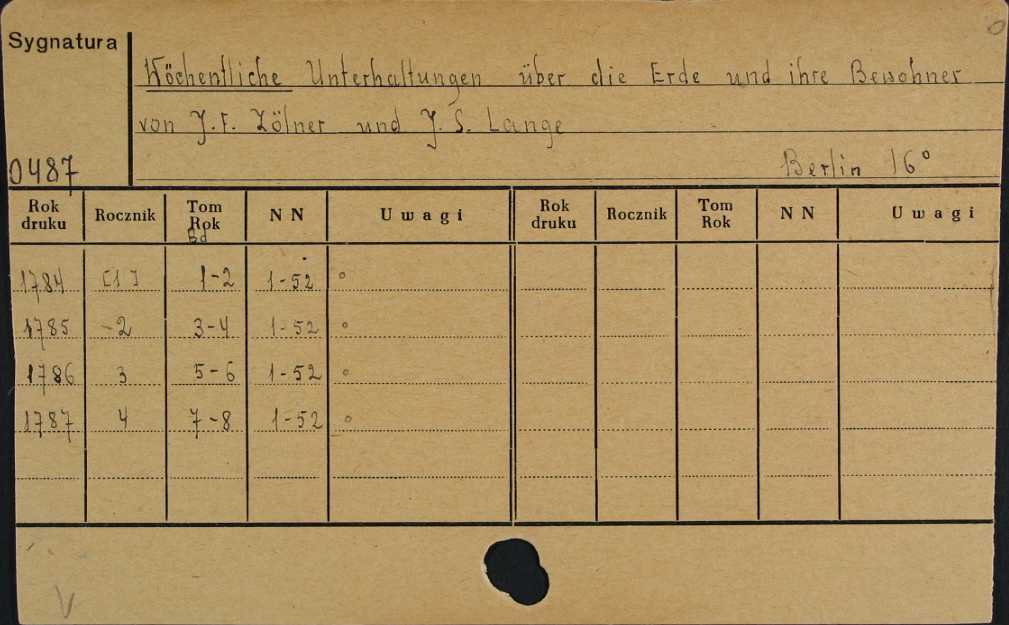 Sygnatura
Wöchentliche Unterhaltungen über die Erde und ihre Bewohner
von J. F. Zölner und J. S. Lange
0487
Berlin 16°
Rok druku Rocznik Tom Rok N N Uwagi Rok druku Rocznik Tom Rok N N Uwagi
Bd
1784 [1] 1-2 1-52 °
1785 2 3-4 1-52 °
1786 3 5-6 1-52 °
1787 4 7-8 1-52 °